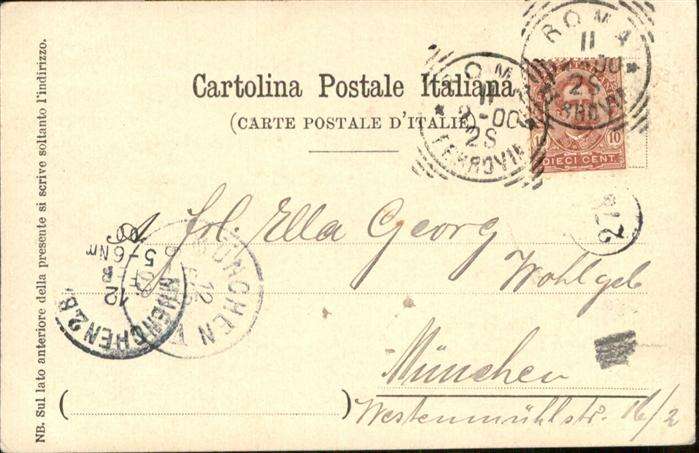 Cartolina Postale Italiana
(CARTE POSTALE D'ITALIE)
NB. Sul lato anteriore della presente si scrive soltanto l'indirizzo.
ROMA
11
00
2S
FERROVIA
ROMA
11
2-00
2S
FERROVIA
10
DIECI CENT.
27
frl. Ella Georg
Wohlgeb
München
Westermühlstr. 16/2
MÜNCHEN
12
MUENCHEN 2 B.
12
5-6 Nm